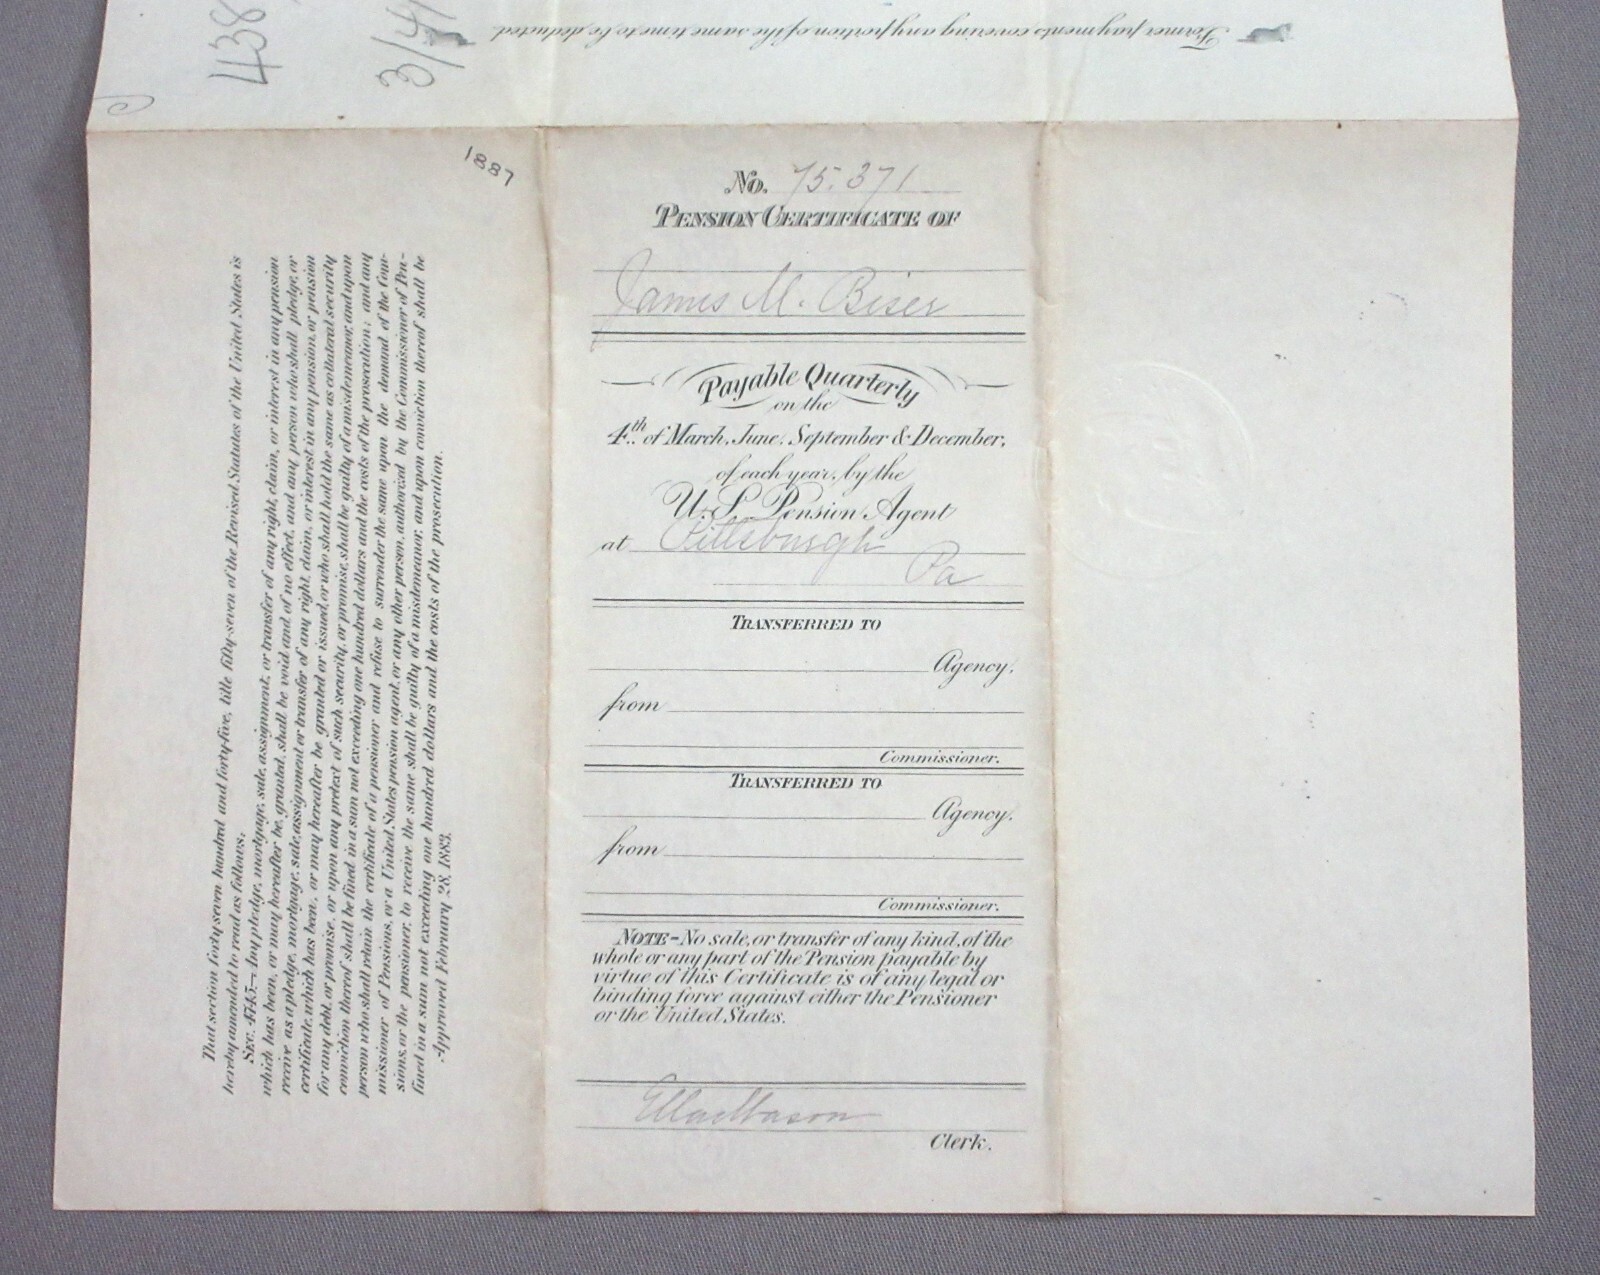 438
3/41
Former payments covering any portion of the same time to be deducted.
1887
That section forty-seven hundred and forty-five, title fifty-seven of the Revised Statutes of the United States is
hereby amended to read as follows:
SEC. 4745.—Any pledge, mortgage, sale, assignment, or transfer of any right, claim, or interest in any pension
which has been, or may hereafter be, granted, shall be void and of no effect, and any person who shall pledge, or
receive as a pledge, mortgage, sale, assignment or transfer of any right, claim, or interest in any pension, or pension
certificate, which has been, or may hereafter be granted or issued, or who shall hold the same as collateral security
for any debt, or promise, or upon any pretext of such security, or promise, shall be guilty of a misdemeanor, and upon
conviction thereof shall be fined in a sum not exceeding one hundred dollars and the costs of the prosecution; and any
person who shall retain the certificate of a pensioner and refuse to surrender the same upon the demand of the Com-
missioner of Pensions, or a United States pension agent, or any other person, authorized by the Commissioner of Pen-
sions, or the pensioner, to receive the same shall be guilty of a misdemeanor; and upon conviction thereof shall be
fined in a sum not exceeding one hundred dollars and the costs of the prosecution.
Approved February 28, 1883.
No. 75.371
PENSION CERTIFICATE OF
James M. Biser
Payable Quarterly
on the
4th of March, June, September & December,
of each year, by the
U.S. Pension Agent
at Pittsburgh
Pa
TRANSFERRED TO
Agency,
from
Commissioner.
TRANSFERRED TO
Agency,
from
Commissioner.
NOTE-No sale, or transfer of any kind, of the
whole or any part of the Pension payable by
virtue of this Certificate is of any legal or
binding force against either the Pensioner
or the United States.
Clerk.